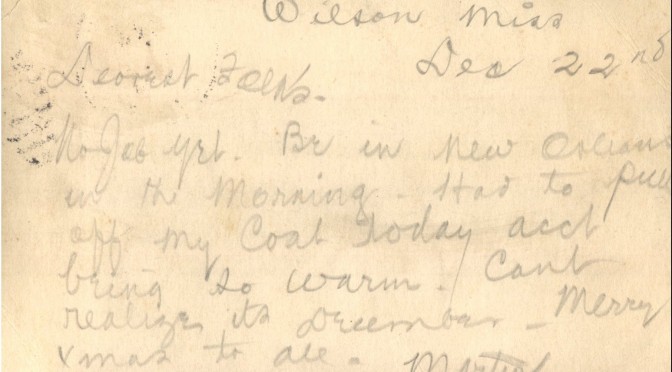 Wilson Miss
Dec 22nd
Dearest Folks.
No Job yet. Be in New Orleans
in the Morning - Had to pull
off my Coat Today acct
being so warm. Cant
realize its December - Merry
xmas to all.